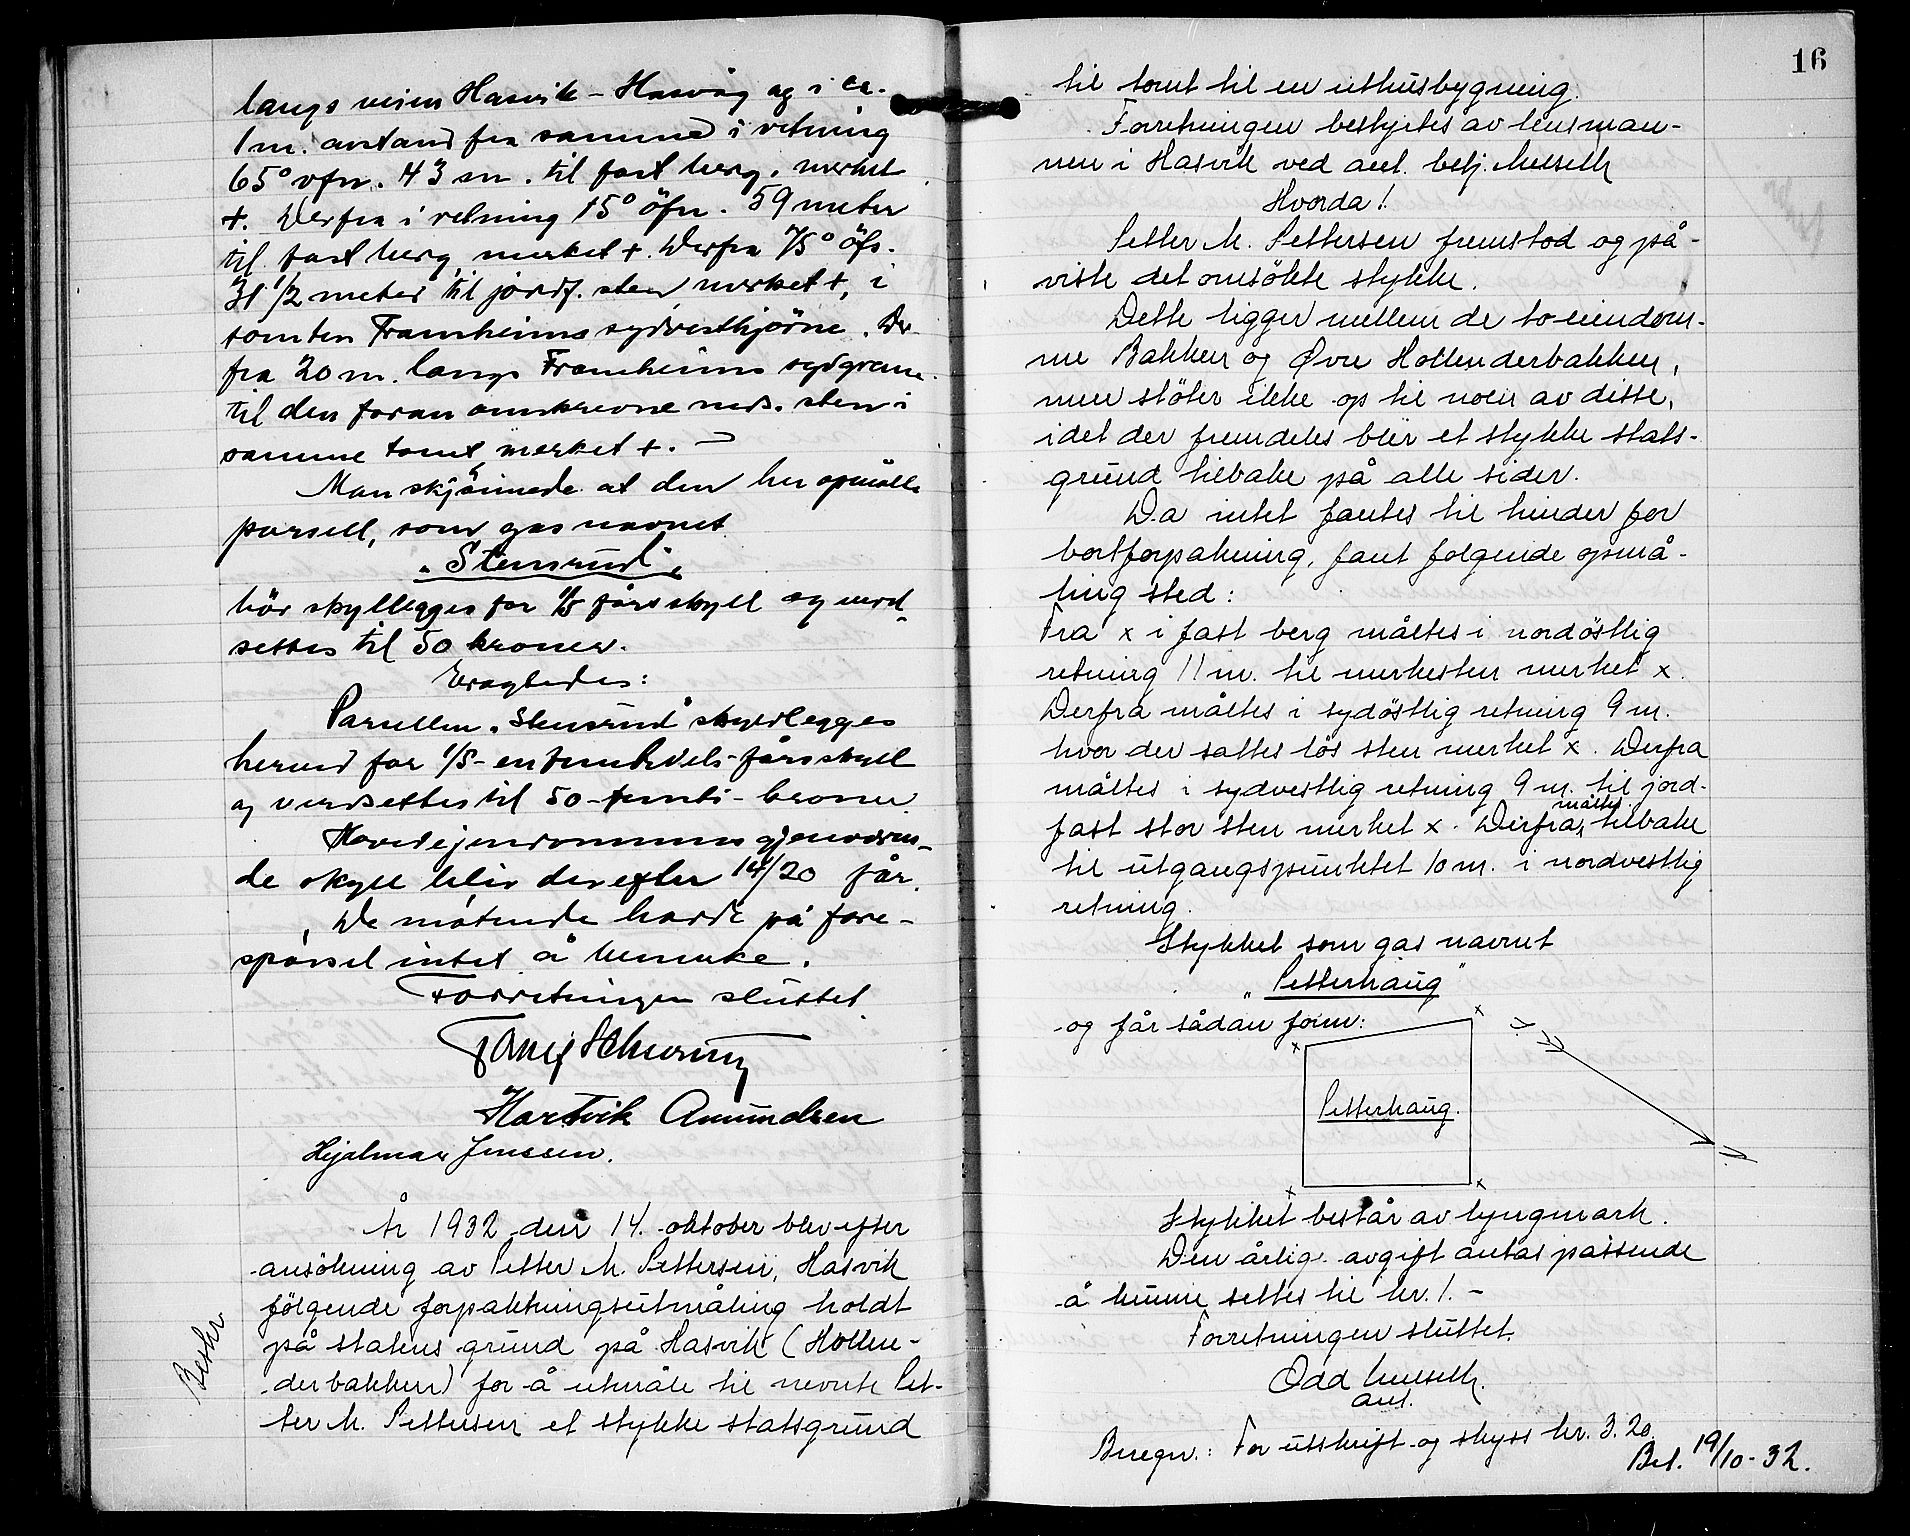 langs veien Hasvik – Hasvåg og i ca.
1 m. avstand fra samme i retning
65° vfn. 43 m. til fast berg, merket
+. Derfra i retning 15° öfn. 59 meter
til fast berg merket +. Derfra 75° öfs.
31 1/2 meter til jordf. sten merket +, i
tomten Framheims sydvesthjörne. Der
fra 20 m. langs Framheims sydgrense
til den foran omskrevne neds. sten i
samme tomt merket +. –
Man skjönnede at den her opmålte
parsell, som gas navnet
"Stensrud",
bör skyllegges for 1/5 fårs skyll og verd-
settes til 50 kroner.
Eragtedes:
Parsellen "Stensrud" skyldlegges
herved for 1/5 - en femtedels - fårs skyll
og verdsettes til 50 - femti - kroner
Hovedejendommens gjenværen-
de skyll blir derefter 14/20 får.
De møtende hadde på fore-
spörsel intet å bemerke.
Forretningen sluttet.
Hartvik Amundsen
Hjalmar Jenssen.
År 1932 den 14. oktober blev efter
ansökning av Petter M. Pettersen, Hasvik
fölgende forpaktningsutmåling holdt
på statens grund på Hasvik (Hollen-
derbakken) for å utmåle til nevnte Pet-
ter M. Pettersen et stykke statsgrund
Beskr
16
til tomt til en uthusbygning.
Forretningen bestyrtes av lensman-
nen i Hasvik ved aut. betj.
Hvorda!
Petter M. Pettersen fremstod og på-
viste det omsökte stykke.
Dette ligger mellem de to eiendom-
me Bakken og Øvre Hollenderbakken,
men stöter ikke op til noen av disse,
idet der fremdeles blir et stykke stats-
grund tilbake på alle sider.
Da intet fantes til hinder for
bortforpaktning, fant folgende opmå-
ling sted:
Fra x i fast berg måltes i nordöstlig
retning 11 m. til merkesten merket x.
Derfra måltes i sydöstlig retning 9 m.
hvor der sattes lös sten merket x. Derfra
måltes i sydvestlig retning 9 m. til jord-
fast stor sten merket x. Derfra måltes tilbake
til utgangspunktet 10 m. i nordvestlig
retning.
Stykket som gas navnet
"Petterhaug"
og får sådan form:
Petterhaug.
Stykket består av lyngmark.
Den årlige avgift antas passende
å kunne settes til kr. 1. –
Forretningen sluttet.
Odd
aut.
Beregn.: For utskrift og skyss kr. 3.20.
Bet. 19/10-32.